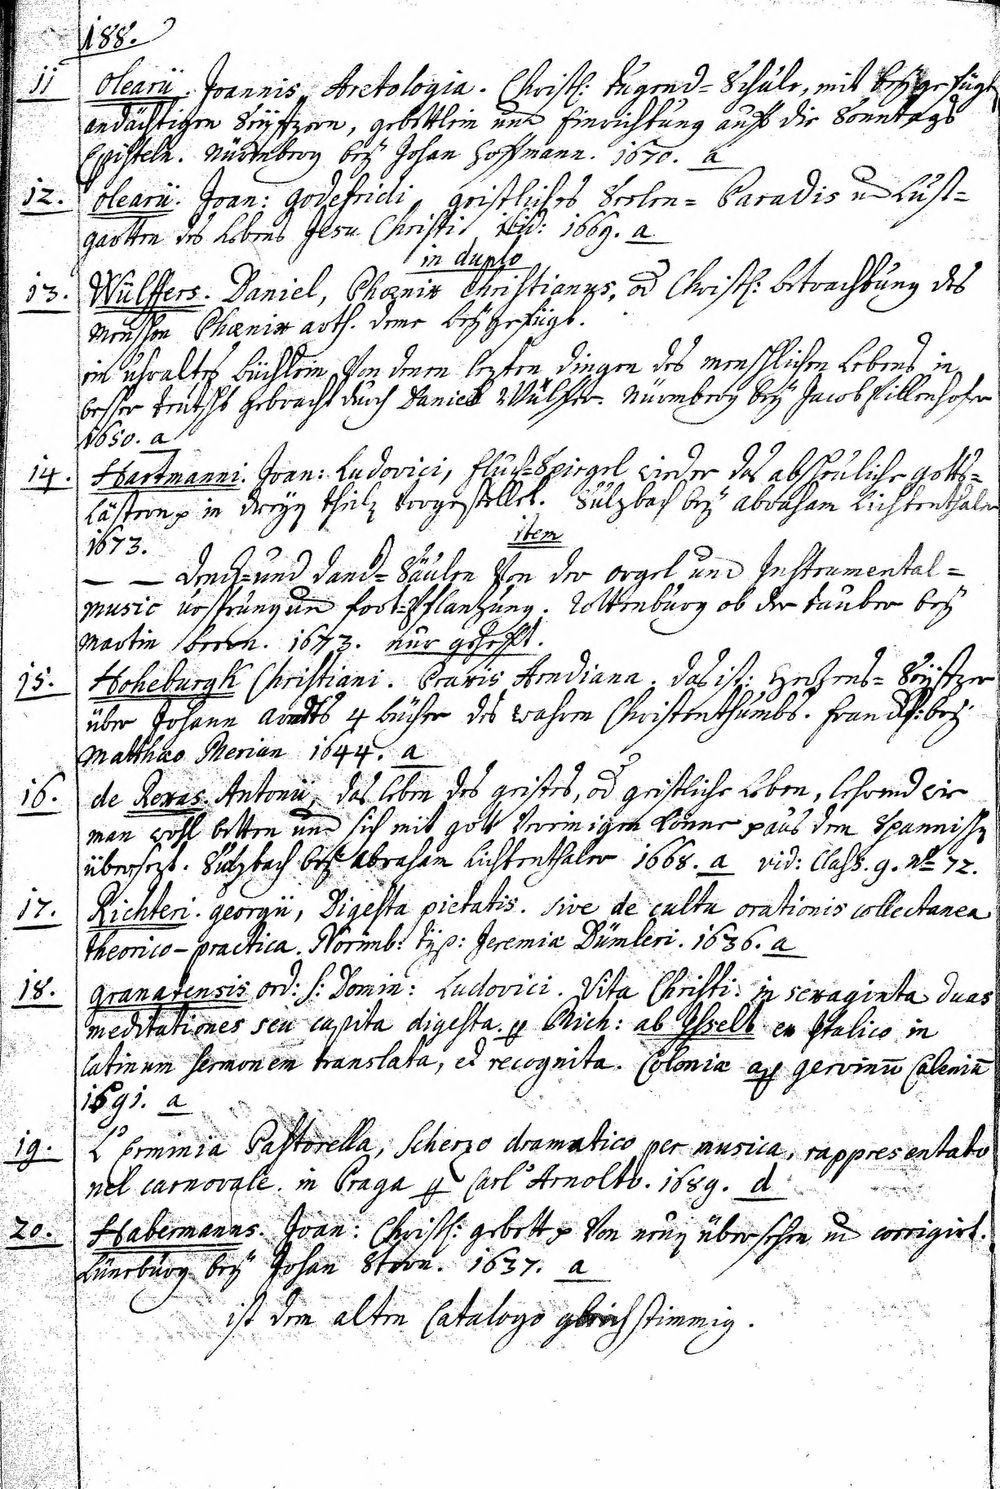 188.
11 Olearii. Joannis, Aretologia. Christl: Tugend-Schule, mit beygefügt
andächtigen Seüfftzern, gebettlein und Einrichtung auff die Sonntags
Episteln. Nürnberg beÿ Johan Hoffmann. 1670. a
12. Olearii. Joan: Godefridi, geistliches Seelen= Paradis und Lust=
garten des Lebens Jesu Christi. ibid: 1669. a
in duplo
13. Wülffers. Daniel, Phœnix Christianus, od Christl: betrachtung des
Menschen Phœnix arth. deme beÿgefügt.
ein uhraltes büchlein von denen lezten dingen des menschlichen Lebens in
besser teutsch gebracht durch Daniel Wülffer. Nürnberg beÿ Jacob Pillenhofer
1650. a
14. Hartmanni. Joan: Ludovici, Fluch=Spiegel wieder das abscheuliche gotts=
lästern in dreyen theilen vorgestellet. Sulzbach beÿ Abraham Lichtenthaler
1673.
item
— — Denck=und Danck=Säulen Von der orgel und Instrumental=
music ursprung und fort=Pflantzung. Rottenburg ob der tauber beÿ
Martin 1673. nur gehefft.
15. Hoheburgk Christiani. Praxis Arndiana. das ist: Hertzens= Seüfftzer
über Johann Arndts 4 bücher des wahren Christenthumbs. Franckf: beÿ
Matthæo Merian 1644. a
16. de Roxas. Antonii, das leben des geistes, od geistliche Leben, lehrend wie
man wohl betten und sich mit gott vereinigen könne aus dem Spannischen
übersezt. Sulzbach beÿ Abraham Lichtenthaler 1668. a vid: Class. 9. No 72.
17. Richteri. Georgii, Digesta pietatis. sive de cultu orationis collectanea
theorico-practica. Norimb: typ: Jeremiæ Dümleri. 1636. a
18. Granatensis ord: S: Domin: Ludovici. Vita Christi: in sexaginta duas
meditationes seu capita digesta. p Mich: ab Isselt ex Italico in
latinum sermonem translata, et recognita. Coloniæ ap Gervinum Calenium
1591. a
19. L'Erminia Pastorella, Scherzo dramatico per musica, rappresentato
nel carnovale. in Praga p Carl Arnolt. 1689. d
20. Habermanns. Joan: Christl: gebett Von neuen übersehen und corrigirt.
Lüneburg beÿ Johan Stern. 1637. a
ist dem alten Catalogo gleichstimmig.